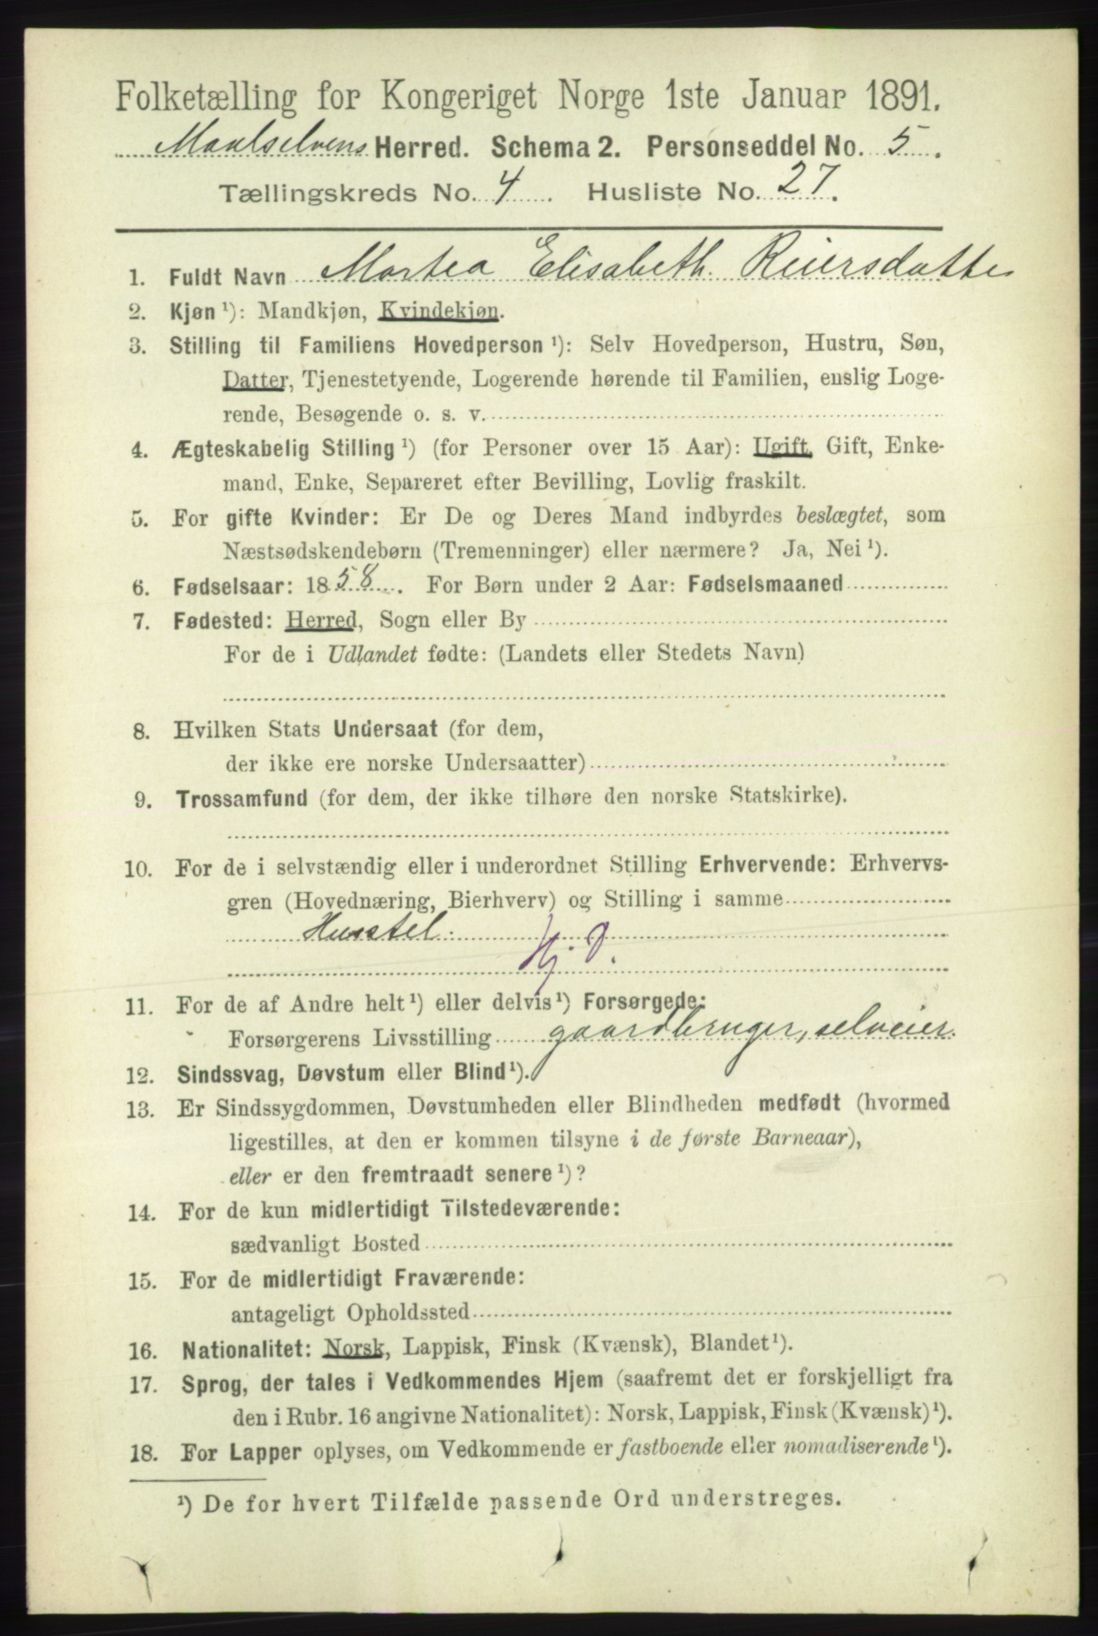 Folketælling for Kongeriget Norge 1ste Januar 1891.
Maalselvens Herred. Schema 2. Personseddel No. 5.
Tællingskreds No. 4. Husliste No. 27.
1. Fuldt Navn Martea Elisabeth Reiersdatter
2. Kjøn ¹): Mandkjøn, Kvindekjøn.
3. Stilling til Familiens Hovedperson ¹): Selv Hovedperson, Hustru, Søn,
Datter, Tjenestetyende, Logerende hørende til Familien, enslig Loge-
rende, Besøgende o. s. v.
4. Ægteskabelig Stilling ¹) (for Personer over 15 Aar): Ugift, Gift, Enke-
mand, Enke, Separeret efter Bevilling, Lovlig fraskilt.
5. For gifte Kvinder: Er De og Deres Mand indbyrdes beslægtet, som
Næstsødskendebørn (Tremenninger) eller nærmere? Ja, Nei ¹).
6. Fødselsaar: 1858. For Børn under 2 Aar: Fødselsmaaned
7. Fødested: Herred, Sogn eller By
For de i Udlandet fødte: (Landets eller Stedets Navn)
8. Hvilken Stats Undersaat (for dem,
der ikke ere norske Undersaatter)
9. Trossamfund (for dem, der ikke tilhøre den norske Statskirke).
10. For de i selvstændig eller i underordnet Stilling Erhvervende: Erhvervs-
gren (Hovednæring, Bierhverv) og Stilling i samme
Husstel.
Hj. D.
11. For de af Andre helt ¹) eller delvis ¹) Forsørgede:
Forsørgerens Livsstilling gaardbruger, selveier.
12. Sindssvag, Døvstum eller Blind ¹).
13. Er Sindssygdommen, Døvstumheden eller Blindheden medfødt (hvormed
ligestilles, at den er kommen tilsyne i de første Barneaar),
eller er den fremtraadt senere ¹)?
14. For de kun midlertidigt Tilstedeværende:
sædvanligt Bosted
15. For de midlertidigt Fraværende:
antageligt Opholdssted
16. Nationalitet: Norsk, Lappisk, Finsk (Kvænsk), Blandet ¹).
17. Sprog, der tales i Vedkommendes Hjem (saafremt det er forskjelligt fra
den i Rubr. 16 angivne Nationalitet): Norsk, Lappisk, Finsk (Kvænsk) ¹).
18. For Lapper oplyses, om Vedkommende er fastboende eller nomadiserende ¹).
¹) De for hvert Tilfælde passende Ord understreges.